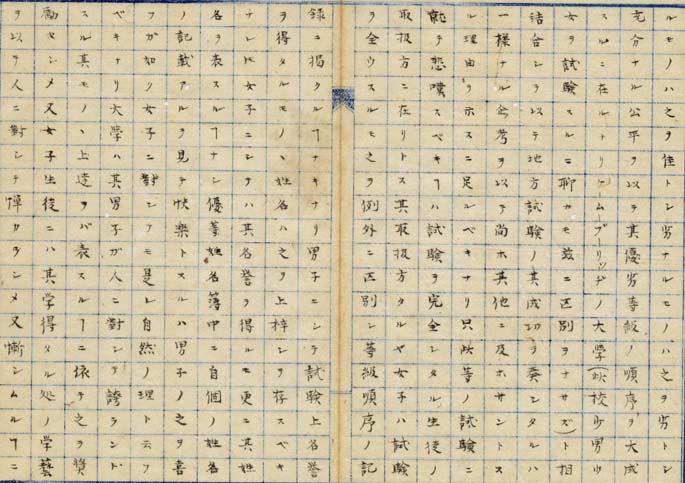 ルモノハ之ヲ佳トシ劣ナルモノハ之ヲ劣トシ
充分ナル公平ヲ以テ其優劣等級ノ順序ヲ大成
スルニ在ルナリケームブーリッヂノ大學(此校少男少
女ヲ試験スルニ聊カモ茲ニ区別ヲナサズ)ト相
結合シヲ以テ地方試験ノ其成功ヲ奏シタルハ
一様ナル企考ヲ以テ尚ホ其他ニ及ホサントス
ル理由ヲホスニ足ルベキナリ只此等ノ試験ニ
就テ悲嘆スベキヿハ試験ヲ完全シタル生徒ノ
取扱方ニ在リトス其取扱方タルヤ女子ハ試験
ヲ全ウスルモ之ヲ例外ニ区別シ等級順序ノ記
録ニ掲クルヿナキナリ男子ニシテ試験上名誉
ヲ得タルモノヽ姓名ハ之ヲ上梓シヲ存スベキ
ナレ𪜈女子ニシテハ其名誉ヲ得ルモ更ニ其姓
名ヲ表スルヿナシ優等姓名簿中ニ自個ノ姓名
ノ記載アルヲ見テ快樂トスルハ男子ノ之ヲ喜
フガ如ク女子ニ對シテモ是レ自然ノ理ト云フ
ベキナリ大學ハ其男子ガ人ニ對シテ誇ラント
スル其モノヽ上達ヲバ表スルヿニ依テ之ヲ奨
励セシメ又女子生徒ニハ其学得タル処ノ学藝
ヲ以テ人ニ對シテ憚カラシメ又慚シムルヿニ